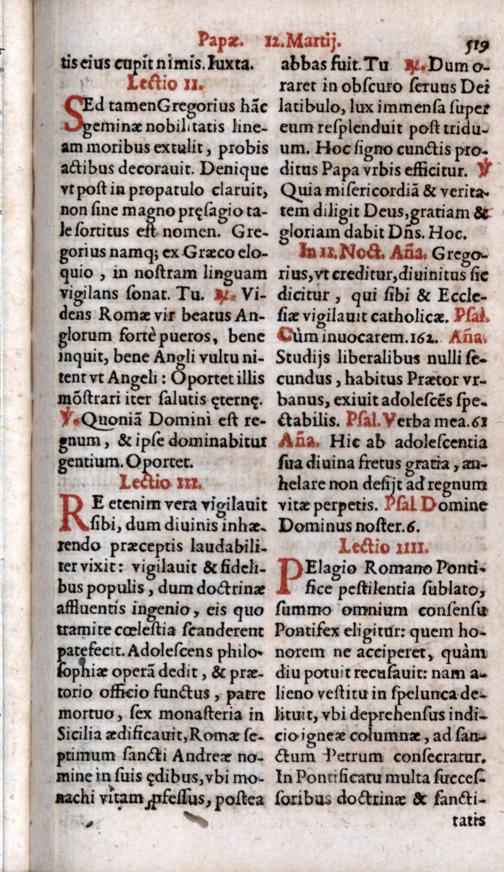 Papæ. 12. Martij. 519
tis eius cupit nimis. Iuxta.
Lectio II.
SEd tamen Gregorius hãc
geminæ nobilitatis line-
am moribus extulit, probis
actibus decorauit. Denique
vt post in propatulo claruit,
non sine magno pręsagio ta-
le sortitus est nomen. Gre-
gorius namq; ex Græco elo-
quio, in nostram linguam
vigilans sonat. Tu. ℟. Vi-
dens Romæ vir beatus An-
glorum fortè pueros, bene
inquit, bene Angli vultu ni-
tent vt Angeli: Oportet illis
mõstrari iter salutis ęternę.
℣. Quoniã Domini est re-
gnum, & ipse dominabitur
gentium. Oportet.
Lectio III.
RE etenim vera vigilauit
sibi, dum diuinis inhæ-
rendo præceptis laudabili-
ter vixit: vigilauit & fideli-
bus populis, dum doctrinæ
affluentis ingenio, eis quo
tramite cœlestia scanderent
patefecit. Adolescens philo-
sophiæ operã dedit, & præ-
torio officio functus, patre
mortuo, sex monasteria in
Sicilia ædificauit, Romæ se-
ptimum sancti Andreæ no-
mine in suis ędibus, vbi mo-
nachi vitam ꝓfessus, postea
abbas fuit. Tu ℟. Dum o-
raret in obscuro seruus Dei
latibulo, lux immensa super
eum resplenduit post tridu-
um. Hoc signo cunctis pro-
ditus Papa vrbis efficitur. ℣
Quia misericordiã & verita-
tem diligit Deus, gratiam &
gloriam dabit Dñs. Hoc.
In 12. Noct. Aña. Grego-
rius, vt creditur, diuinitus sic
dicitur, qui sibi & Eccle-
siæ vigilauit catholicæ. Psal.
Cùm inuocarem. 162. Aña.
Studijs liberalibus nulli se-
cundus, habitus Prætor vr-
banus, exiuit adolescẽs spe-
ctabilis. Psal. Verba mea. 61
Aña. Hic ab adolescentia
sua diuina fretus gratia, an-
helare non desijt ad regnum
vitæ perpetis. Psal Domine
Dominus noster. 6.
Lectio IIII.
PElagio Romano Ponti-
fice pestilentia sublato,
summo omnium consensu
Pontifex eligitur: quem ho-
norem ne acciperet, quàm
diu potuit recusauit: nam a-
lieno vestitu in spelunca de-
lituit, vbi deprehensus indi-
cio igneæ columnæ, ad san-
ctum Petrum consecratur.
In Pontificatu multa succes-
soribus doctrinæ & sancti-
tatis